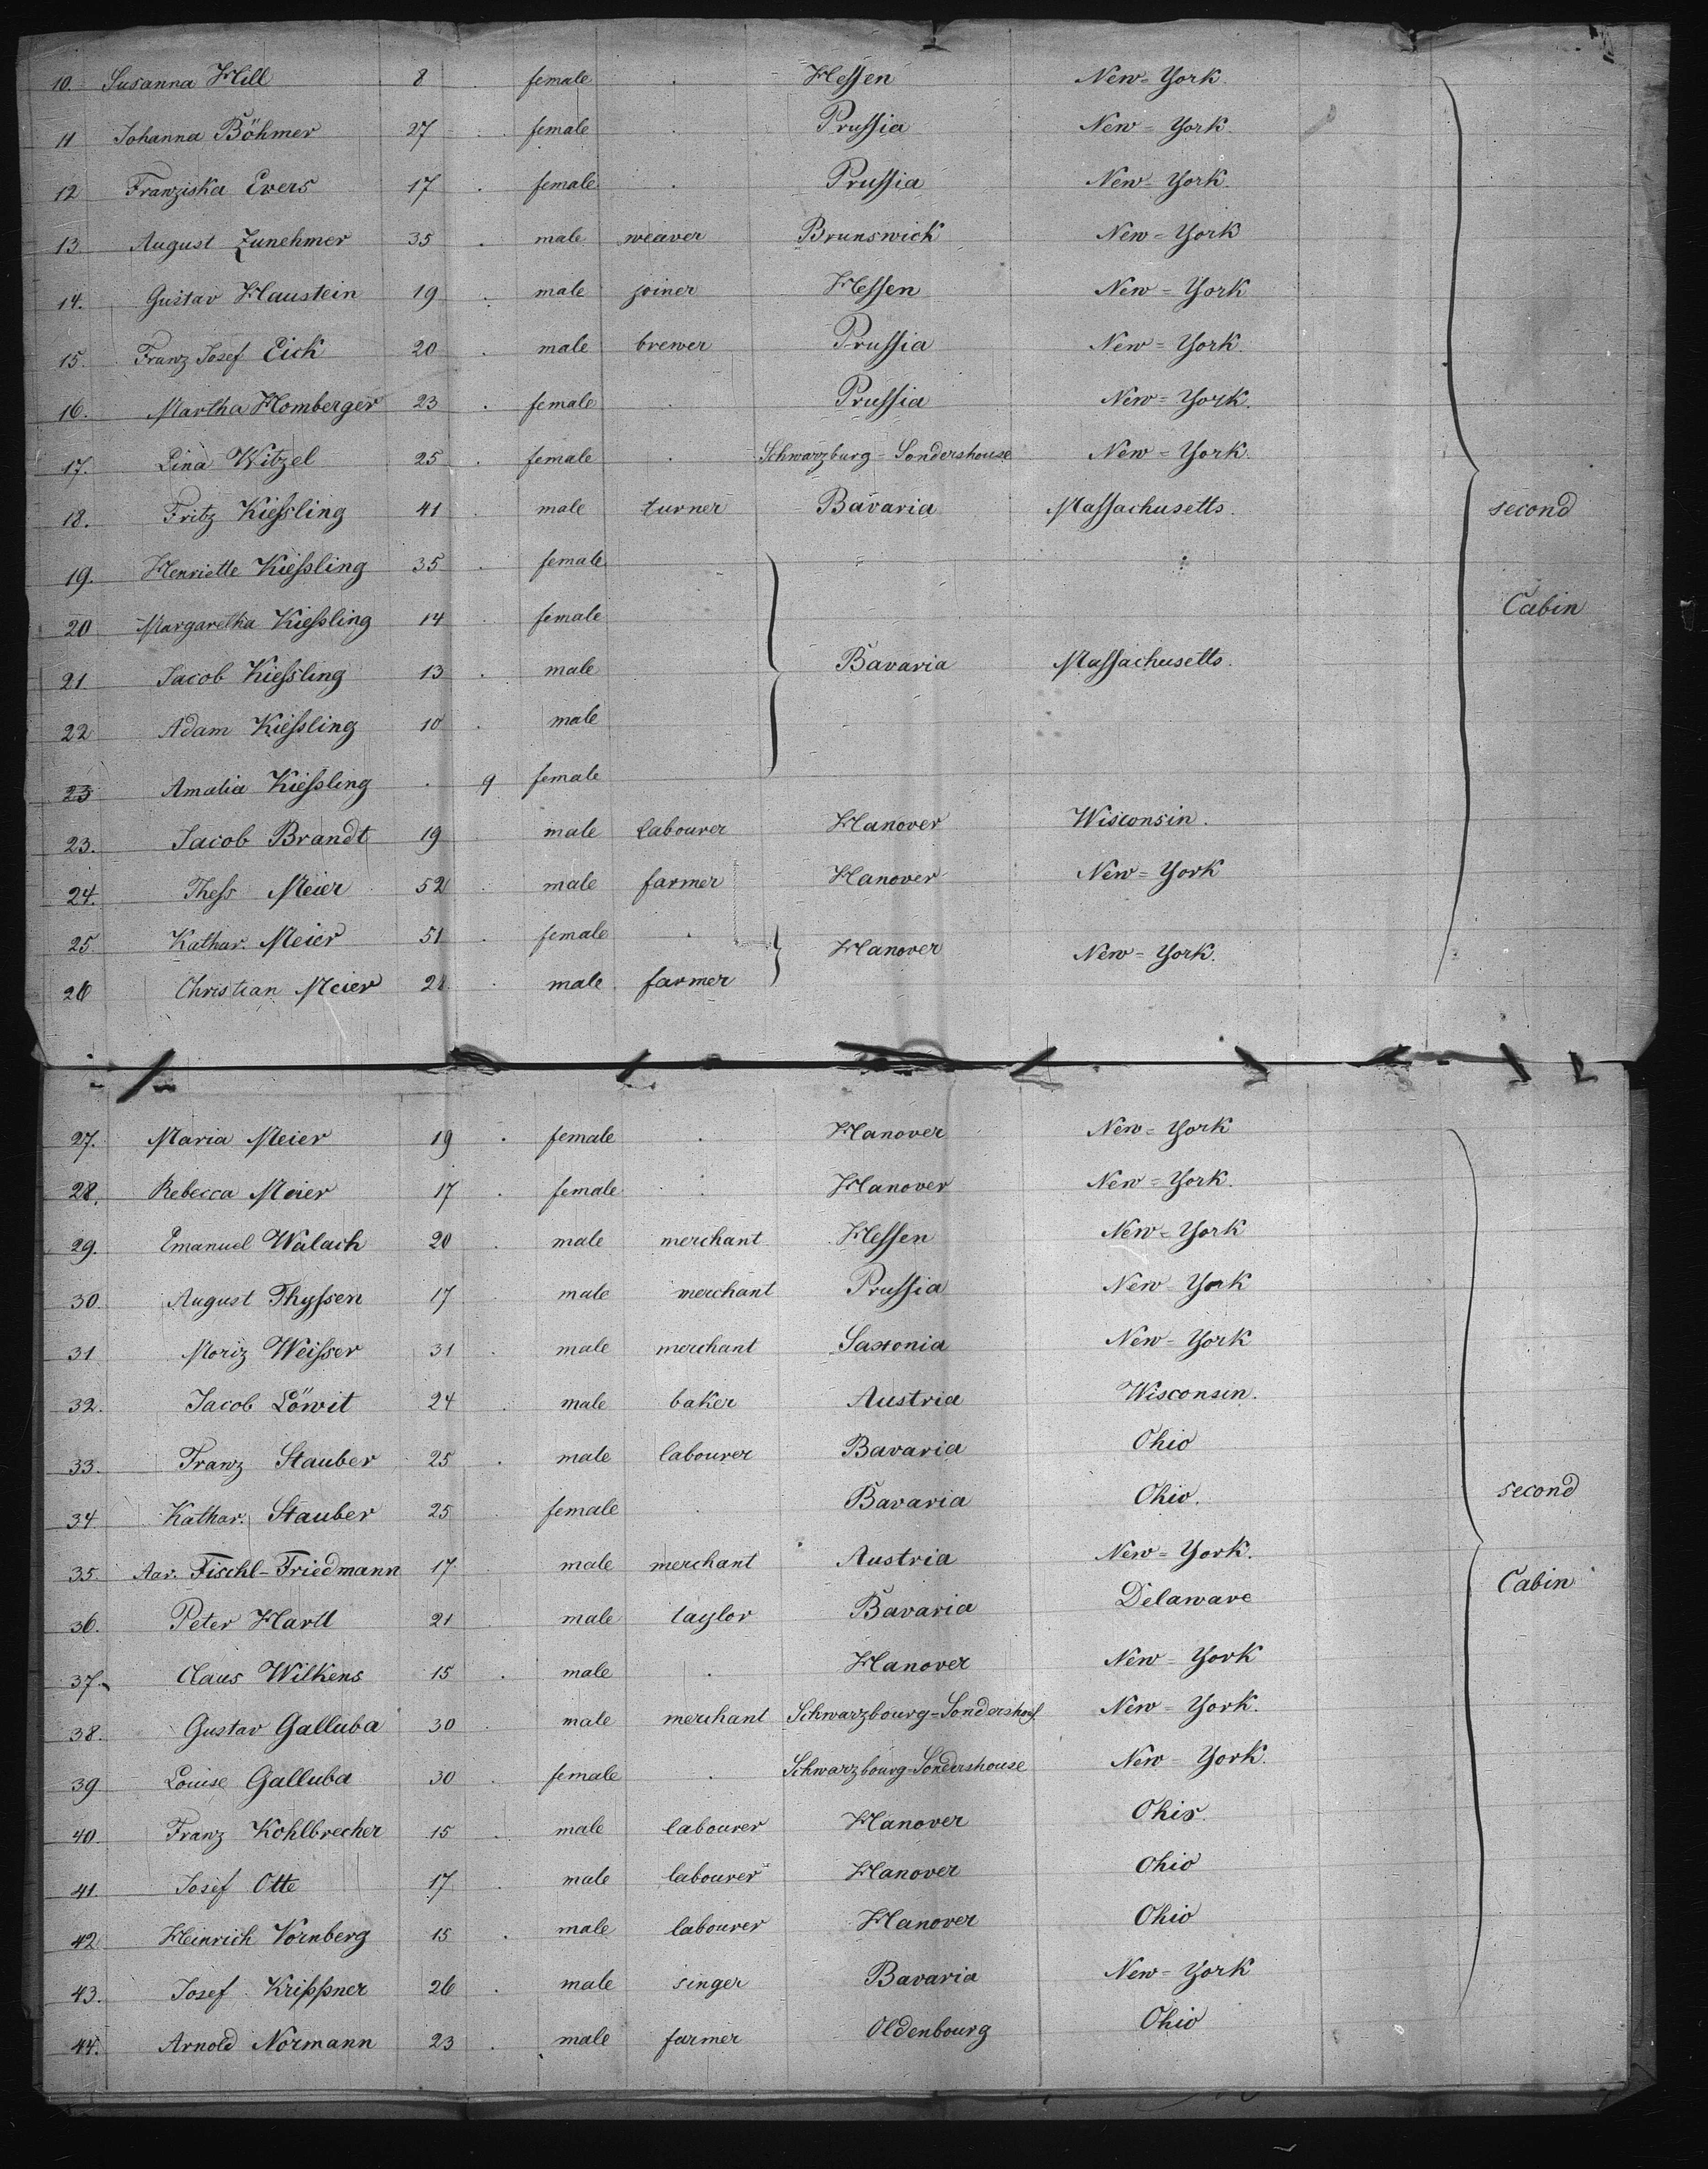 10. Susanna Hill 8 . female . Hessen New=York.
11 Johanna Böhmer 27 . female . Prussia New=York.
12 Franziska Evers 17 . female . Prussia New=York.
13. August Zunehmer 35 . male weaver Brunswick New=York
14. Gustav Haustein 19 . male joiner Hessen New=York
15. Franz Josef Eick 20 . male brewer Prussia New=York.
16. Martha Homberger 23 . female . Prussia New=York.
17. Lina Witzel 25 . female . Schwarzburg=Sondershouse New=York.
18. Fritz Kiessling 41 . male turner Bavaria Massachusetts. second
19. Henriette Kiessling 35 . female
20 Margaretha Kiessling 14 . female Cabin
21. Jacob Kiessling 13 . male Bavaria Massachusetts.
22 Adam Kiessling 10 . male
23 Amalia Kiessling . 9 female
23. Jacob Brandt 19 male labourer Hanover Wisconsin.
24. Thess Meier 52 . male farmer Hanover New=York
25 Kathar. Meier 51 . female . Hanover New=York.
26 Christian Meier 28 . male farmer
27. Maria Meier 19 . female . Hanover New=York
28. Rebecca Meier 17 . female . Hanover New=York.
29. Emanuel Walach 20 . male merchant Hessen New=York
30. August Thyssen 17 . male merchant Prussia New=York
31 Moriz Weisser 31 . male merchant Saxonia New=York
32. Jacob Löwit 24 . male baker Austria Wisconsin.
33. Franz Stauber 25 . male labourer Bavaria Ohio
34. Kathar. Stauber 25 . female . Bavaria Ohio. second
35. Aar. Fischl-Friedmann 17 . male merchant Austria New=York.
36. Peter Hartl 21 . male taylor Bavaria Delaware Cabin
37. Claus Wilkens 15 . male . Hanover New=York
38. Gustav Galluba 30 . male merchant Schwarzbourg=Sondershous New=York.
39 Louise Galluba 30 . female . Schwarzbourg=Sondershouse New=York.
40. Franz Kohlbrecher 15 . male labourer Hanover Ohio.
41. Josef Otte 17 . male labourer Hanover Ohio
42. Heinrich Vornberg 15 . male labourer Hanover Ohio
43. Josef Krippner 26 . male singer Bavaria New=York
44. Arnold Normann 23 . male farmer Oldenbourg Ohio